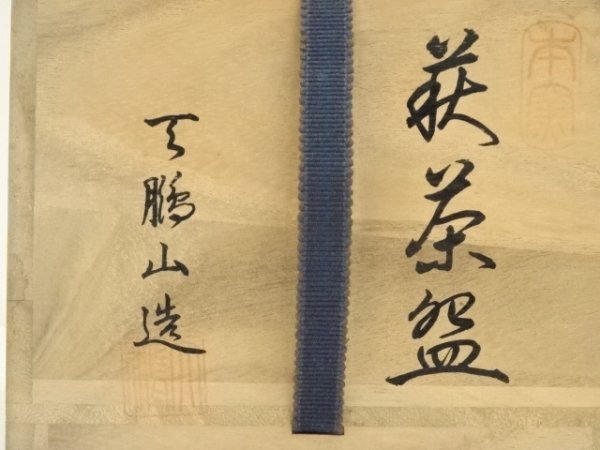 萩茶盌
天鵬山造